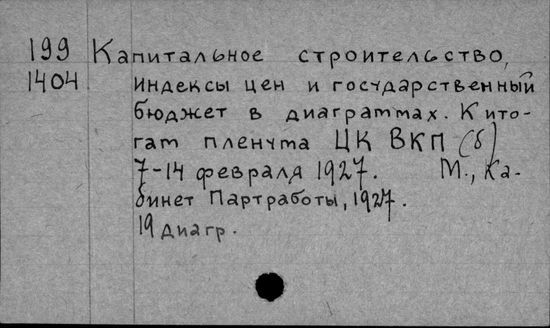 199 Капитальное строительство,
1404 индексы цен и государственный
бюджет в диаграммах. К ито-
гам пленума ЦК ВКП(б)
7-14 февраля 1927. М., Ка-
бинет Партработы, 1927.
19 диагр.